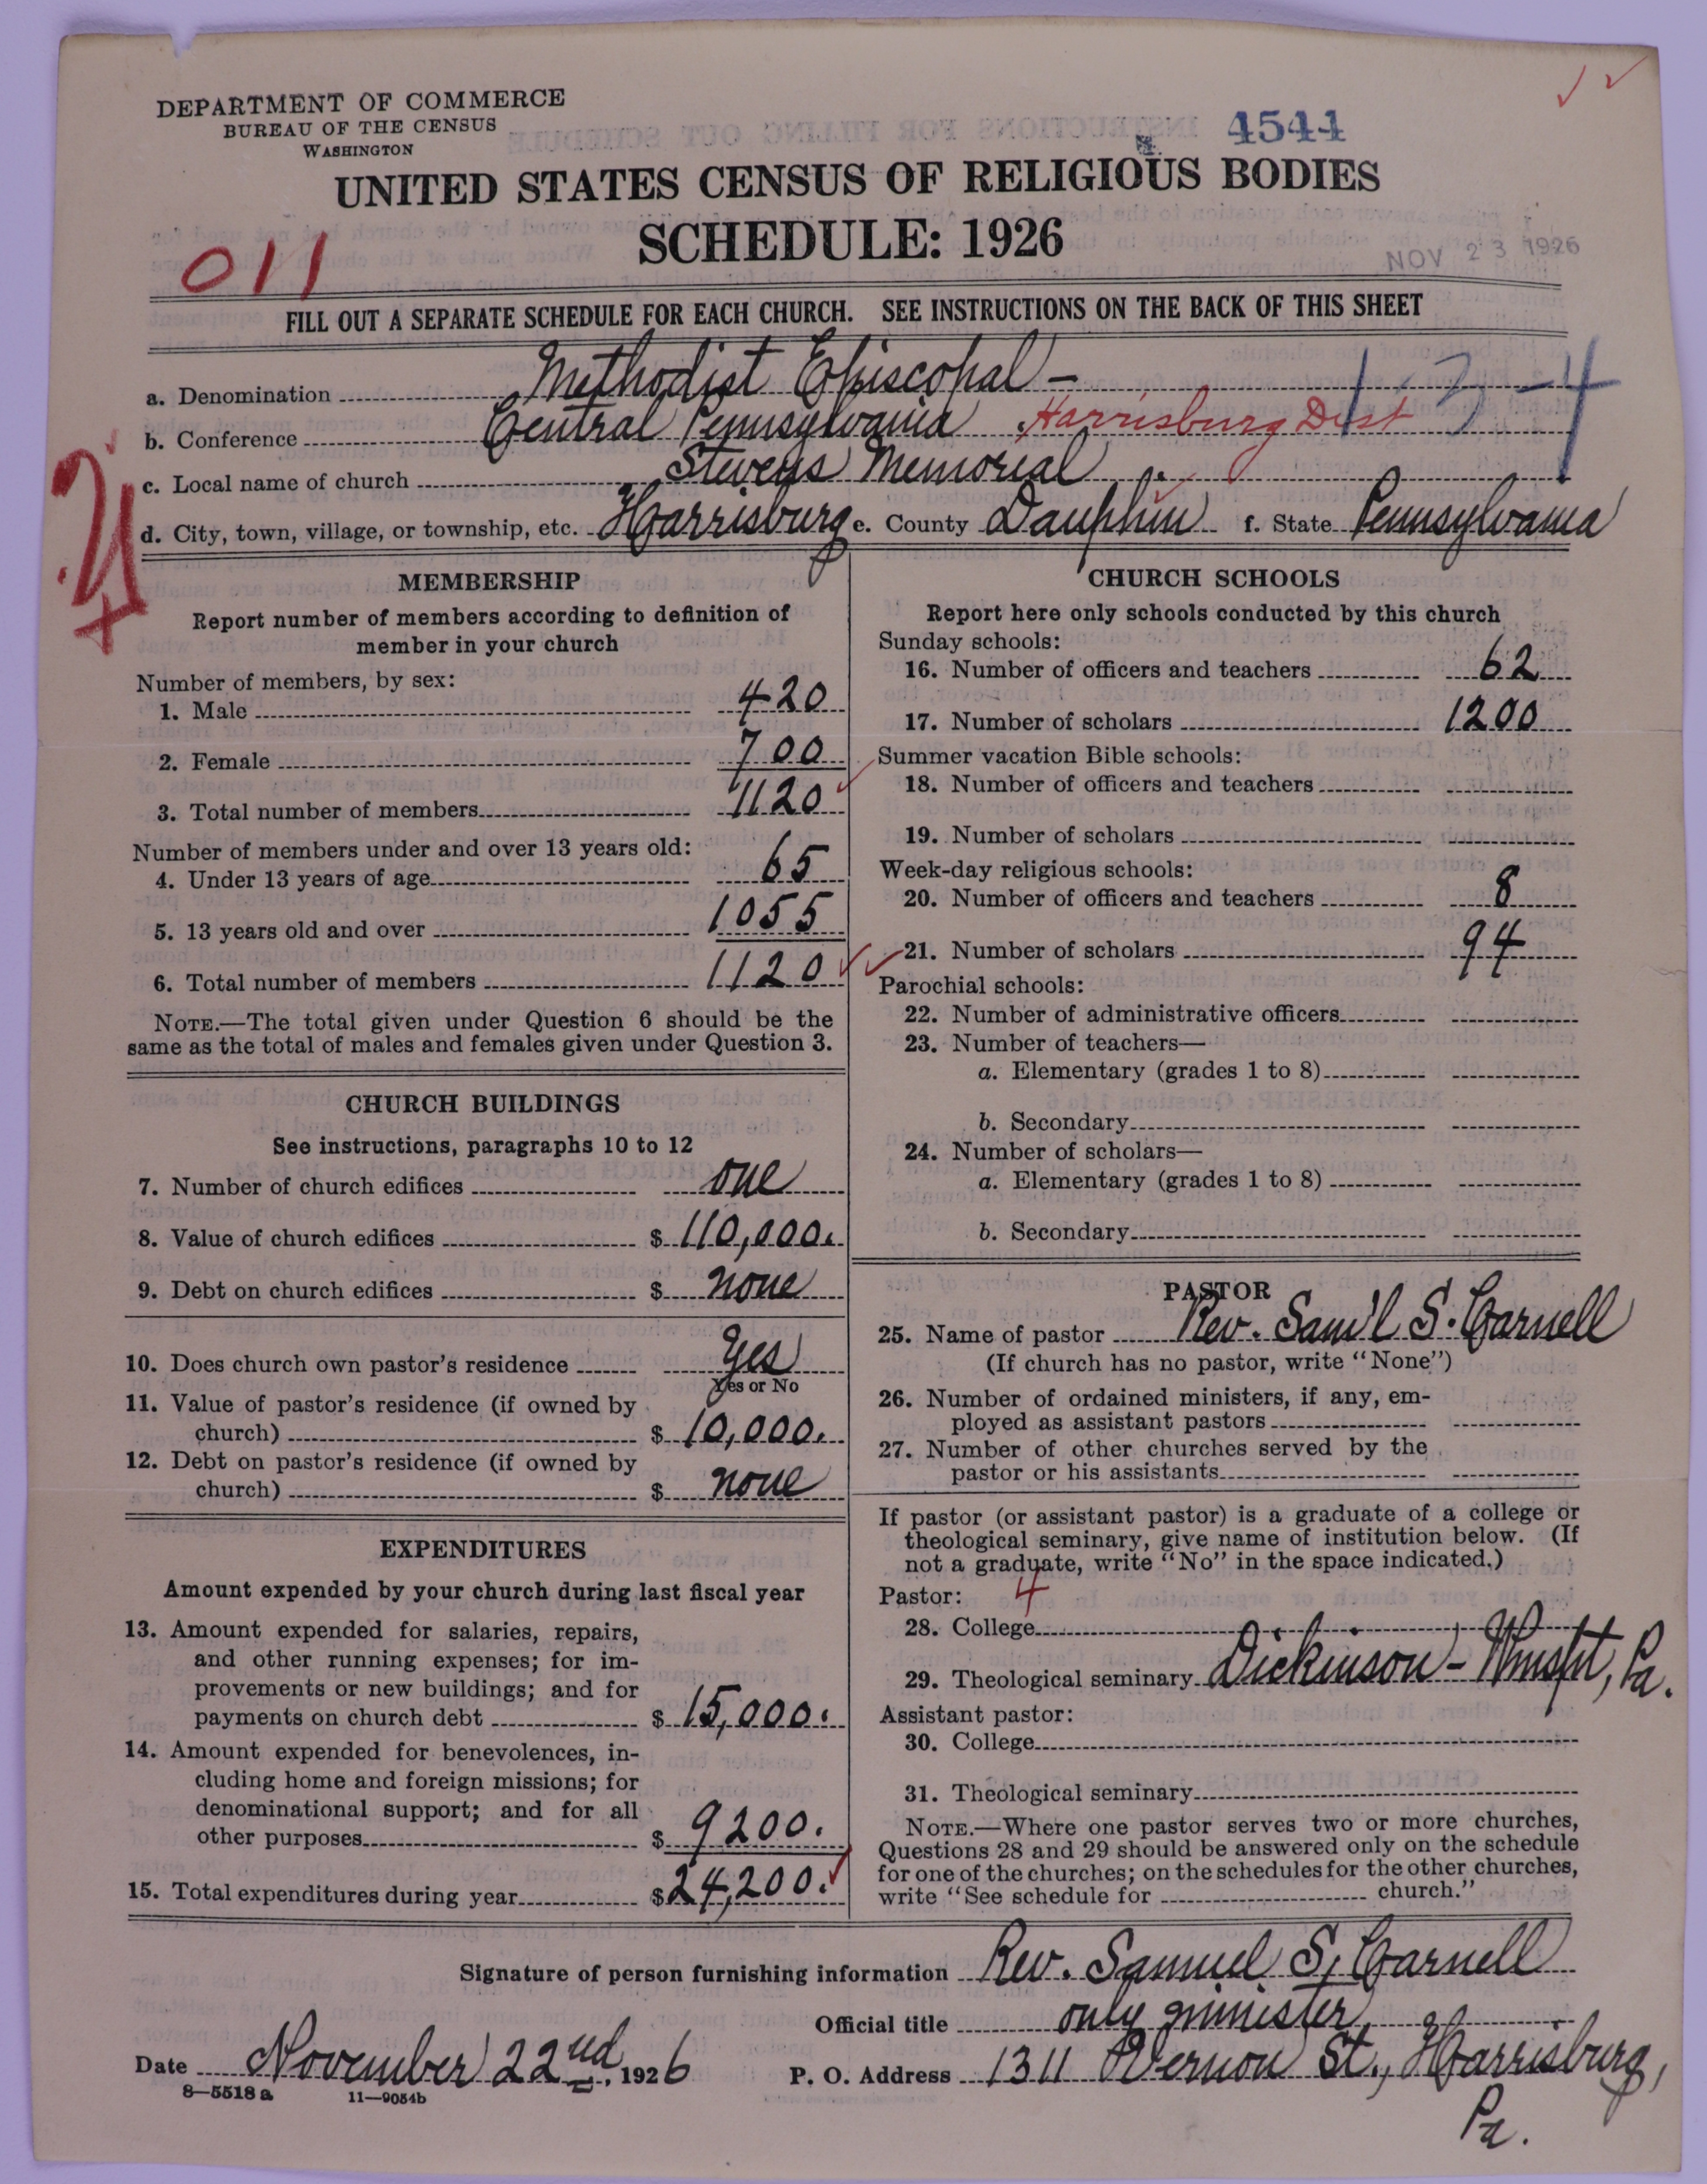 DEPARTMENT OF COMMERCE
BUREAU OF THE CENSUS
WASHINGTON
4544
UNITED STATES CENSUS OF RELIGIOUS BODIES
SCHEDULE: 1926
011
NOV 23 1926
FILL OUT A SEPARATE SCHEDULE FOR EACH CHURCH. SEE INSTRUCTIONS ON THE BACK OF THIS SHEET
a. Denomination Methodist Episcopal -
b. Conference Central Pennsylvania Harrisburg Dist
c. Local name of church Stevens Memorial
d. City, town, village, or township, etc. Harrisburg e. County Dauphin f. State Pennsylvania
MEMBERSHIP
Report number of members according to definition of
member in your church
Number of members, by sex:
1. Male 420
2. Female 700
3. Total number of members 1120
Number of members under and over 13 years old:
4. Under 13 years of age 65
5. 13 years old and over 1055
6. Total number of members 1120
NOTE.—The total given under Question 6 should be the
same as the total of males and females given under Question 3.
CHURCH BUILDINGS
See instructions, paragraphs 10 to 12
7. Number of church edifices one
8. Value of church edifices $ 110,000.
9. Debt on church edifices $ none
10. Does church own pastor's residence Yes
Yes or No
11. Value of pastor's residence (if owned by
church) $ 10,000.
12. Debt on pastor's residence (if owned by
church) $ none
EXPENDITURES
Amount expended by your church during last fiscal year
13. Amount expended for salaries, repairs,
and other running expenses; for im-
provements or new buildings; and for
payments on church debt $ 15,000.
14. Amount expended for benevolences, in-
cluding home and foreign missions; for
denominational support; and for all
other purposes $ 9200.
15. Total expenditures during year $ 24,200.
CHURCH SCHOOLS
Report here only schools conducted by this church
Sunday schools:
16. Number of officers and teachers 62
17. Number of scholars 1200
Summer vacation Bible schools:
18. Number of officers and teachers
19. Number of scholars
Week-day religious schools:
20. Number of officers and teachers 8
21. Number of scholars 94
Parochial schools:
22. Number of administrative officers
23. Number of teachers—
a. Elementary (grades 1 to 8)
b. Secondary
24. Number of scholars—
a. Elementary (grades 1 to 8)
b. Secondary
PASTOR
25. Name of pastor Rev. Sam'l S. Carnell
(If church has no pastor, write "None")
26. Number of ordained ministers, if any, em-
ployed as assistant pastors
27. Number of other churches served by the
pastor or his assistants
If pastor (or assistant pastor) is a graduate of a college or
theological seminary, give name of institution below. (If
not a graduate, write "No" in the space indicated.)
Pastor: 4
28. College
29. Theological seminary Dickinson - Wmspt, Pa.
Assistant pastor:
30. College
31. Theological seminary
NOTE.—Where one pastor serves two or more churches,
Questions 28 and 29 should be answered only on the schedule
for one of the churches; on the schedules for the other churches,
write "See schedule for church."
Signature of person furnishing information Rev. Samuel S. Carnell
Official title only minister
Date November 22nd, 1926 P. O. Address 1311 Vernon St., Harrisburg,
Pa.
8—5518 a 11—9054b